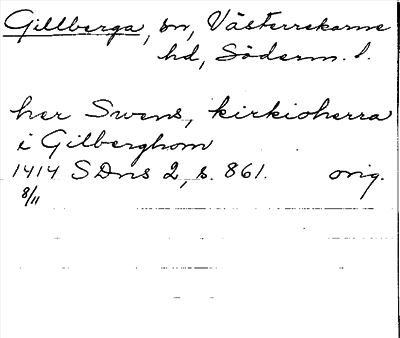 Gillberga, sn, Västerrekarne
hd, Söderm. l.
her Swens, kirkioherra
i Gilberghom
1414 SDns 2, s. 861. orig.
8/11